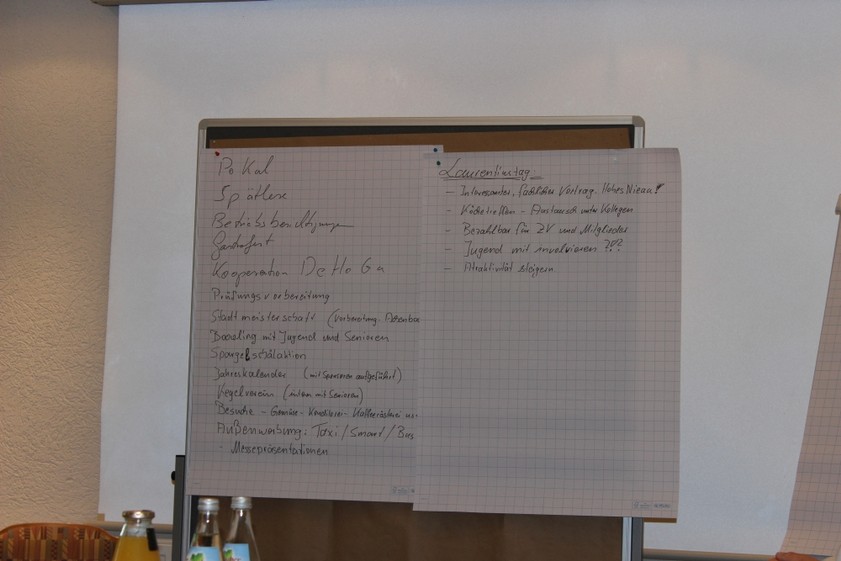 Pokal
Spätlese
Betriebsbesichtigungen
Gastrofest
Kooperation DeHoGa
Prüfungsvorbereitung
Stadtmeisterschaft (Vorbereitung
Bowling mit Jugend und Senioren
Spargelschälaktion
Jahreskalender (mit Senioren aufgeführt)
Kegelverein (intern mit Senioren)
Besuche - Gemüse - Konditorei - Kaffeerösterei
Außenwerbung: Taxi / Smart / Bus
- Messepräsentationen
Laurentiustag
- Interessanter, fachlicher Vortrag. Hohes Niveau!
- Köchetreffen - Austausch unter Kollegen
- Bezahlbar für ZV und Mitglieder
- Jugend mit involvieren ?!?
- Atraktivität steigern